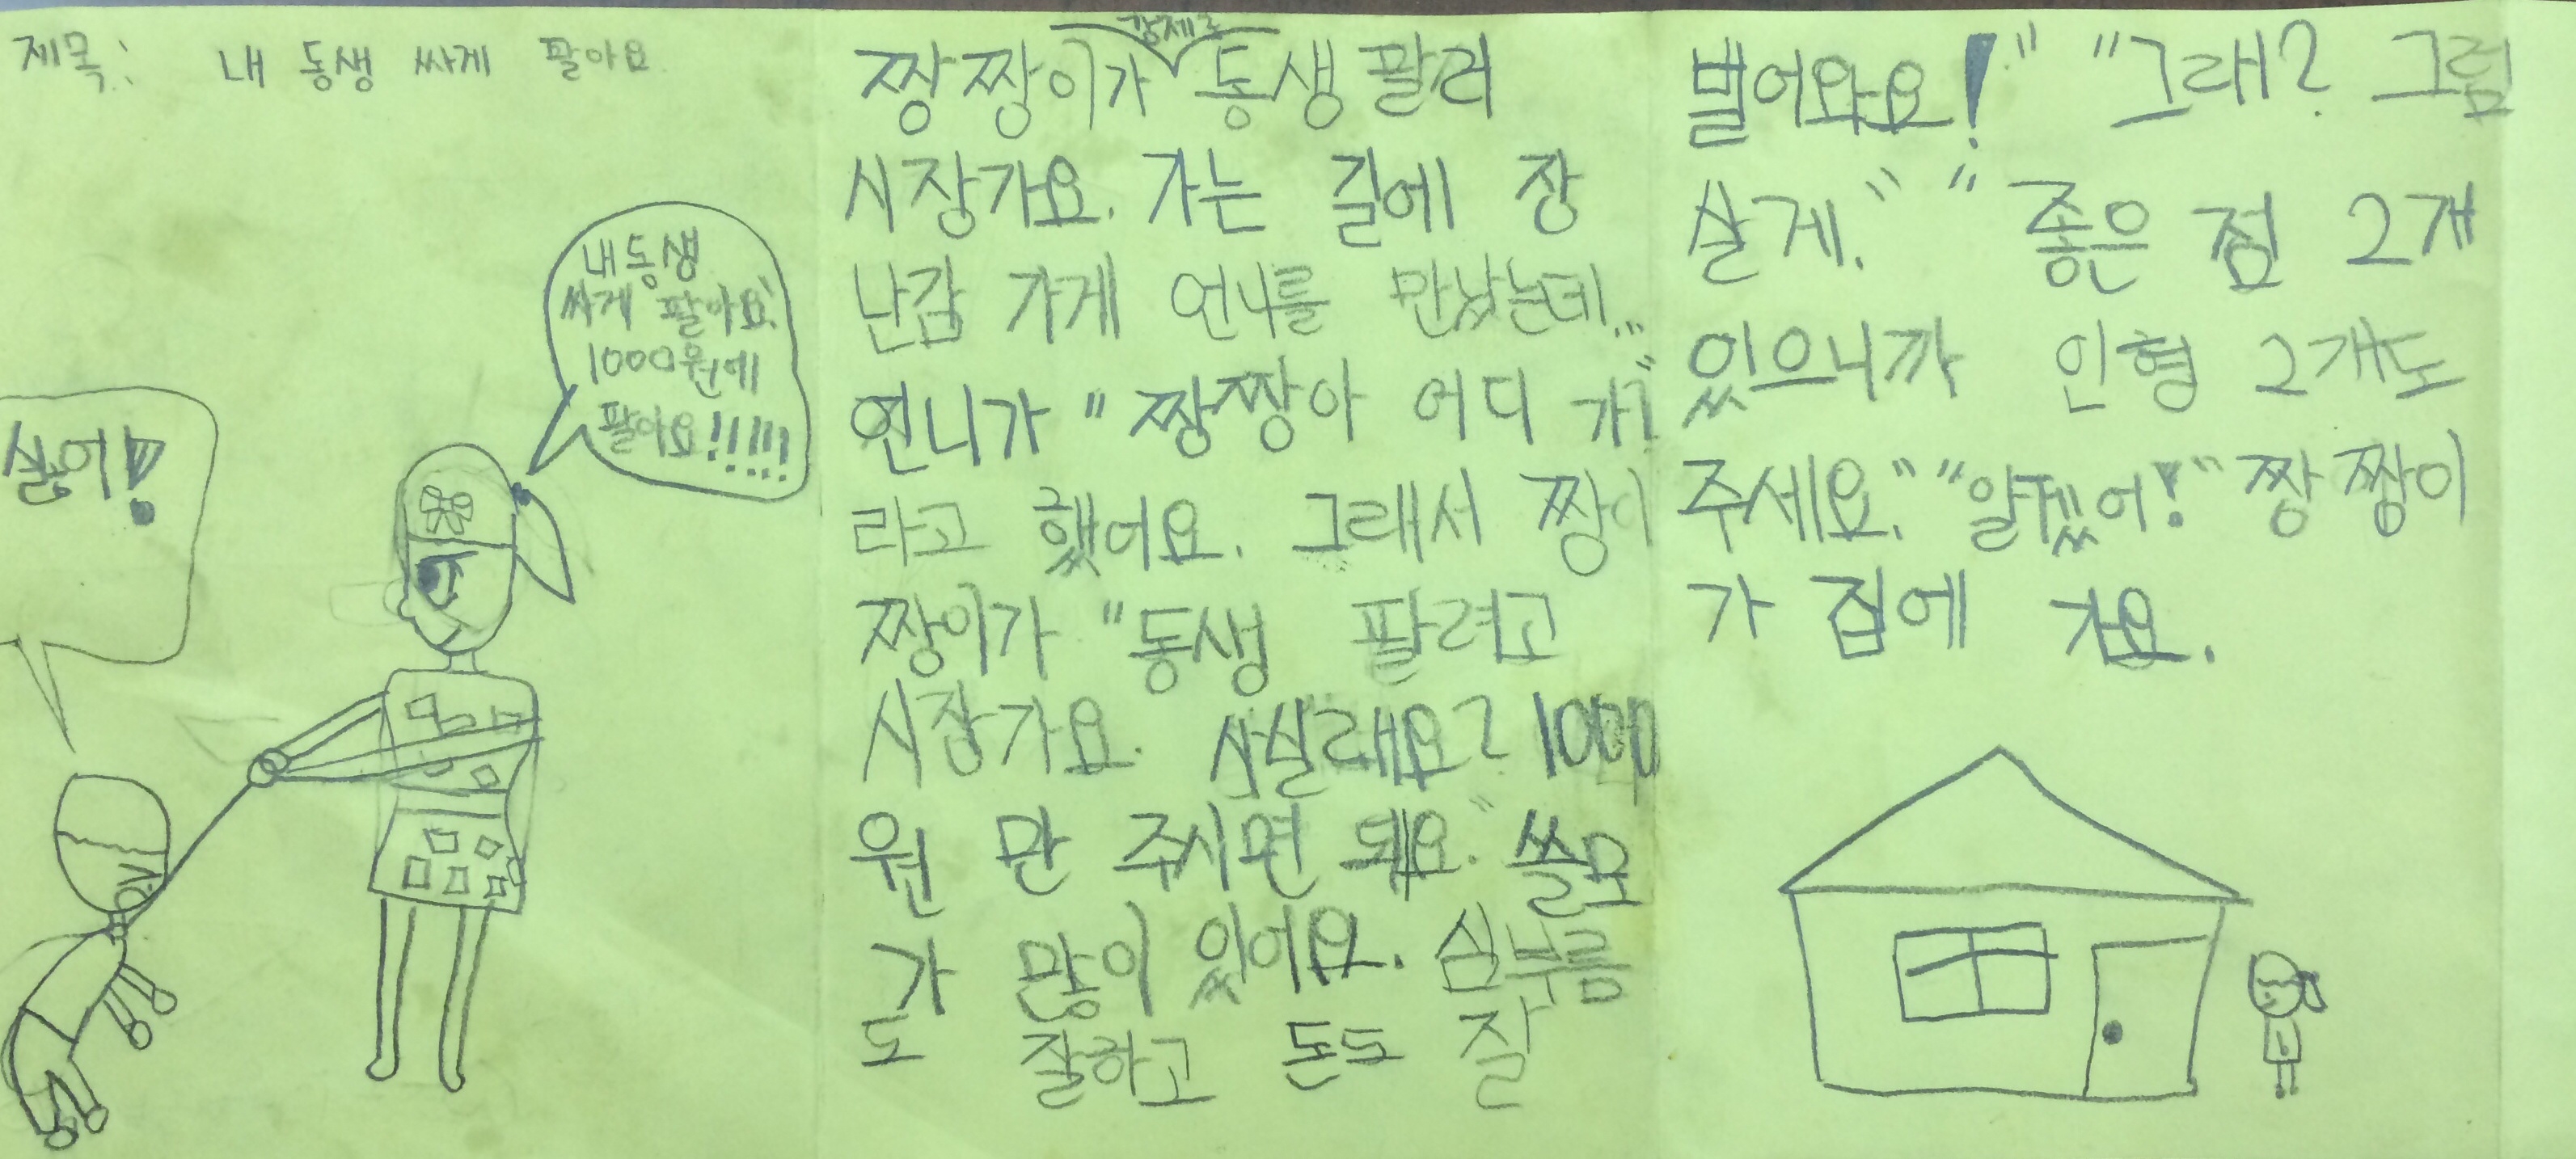 제목: 내 동생 싸게 팔아요
내동생
싸게 팔아요
1000원에
팔아요!!!!!!
싫어!
강제로
짱짱이가 동생팔러
시장가요. 가는 길에 장
난감 가게 언니를 만났는데...
언니가 "짱짱아 어디 가?"
라고 했어요. 그래서 짱
짱이가 "동생 팔려고
시장가요. 사실래요? 1000
원 만 주시면 돼요." 쓸모
가 많이 있어요. 심부름
도 잘하고 돈도 잘
벌어와요!" "그래? 그럼
살게." "좋은 점 2개
있으니까 인형 2개도
주세요." "알겠어!" 짱짱이
가 집에 가요.